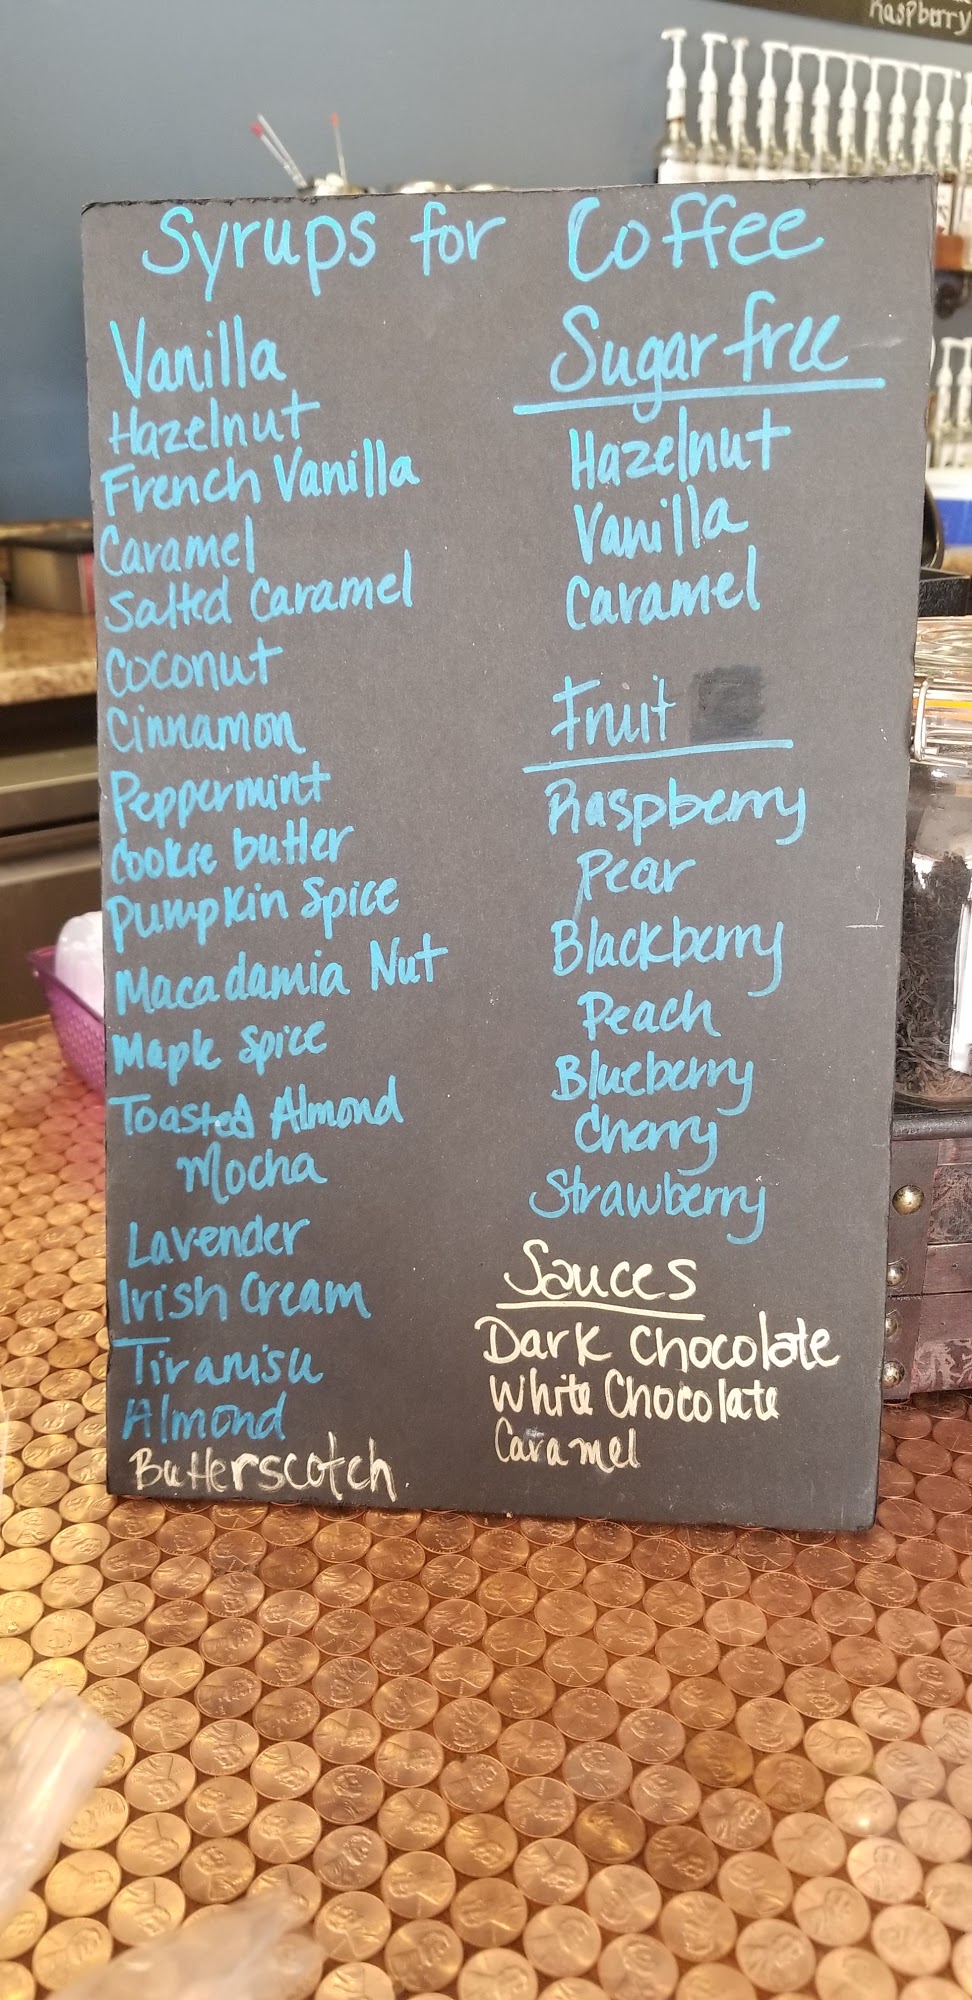 Raspberry
Syrups for Coffee
Vanilla
Hazelnut
French Vanilla
Caramel
Salted Caramel
Coconut
Cinnamon
Peppermint
Cookie butter
Pumpkin Spice
Macadamia Nut
Maple Spice
Toasted Almond
Mocha
Lavender
Irish Cream
Tiramisu
Almond
Butterscotch
Sugar free
Hazelnut
Vanilla
Caramel
Fruit
Raspberry
Pear
Blackberry
Peach
Blueberry
Cherry
Strawberry
Sauces
Dark Chocolate
White Chocolate
Caramel